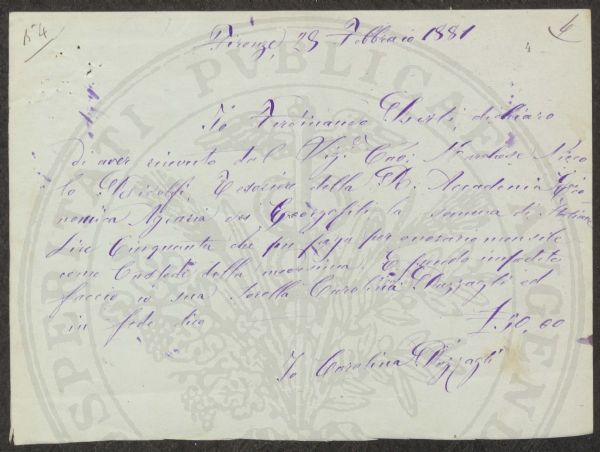 N° 4
6
4
Firenze, 28 Febbraio 1881
Io Ferdinando dichiaro
di aver ricevuto dal Sig.e Cav: Marchese Nicco
lò Ridolfi, Tesoriere della R. Accademia Eco
nomica Agraria dei Georgofili la somma di Italiane
Lire Cinquanta che per paga per onorario mensile
come Custode della medesima. E
faccio io sua Sorella Carolina Pozzagli ed
in fede dico
£. 50,00
Io Carolina Pozzagli
PROSPERITATI PUBLICAE